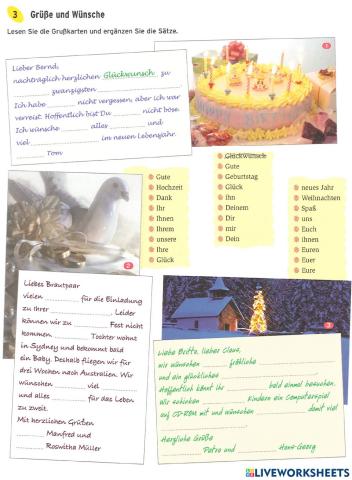 3 Grüße und Wünsche
Lesen Sie die Grußkarten und ergänzen Sie die Sätze.
1
Lieber Bernd,
nachträglich herzlichen Glückwunsch zu
________ zwanzigsten ________.
Ich habe ________ nicht vergessen, aber ich war
verreist. Hoffentlich bist Du ________ nicht böse.
Ich wünsche ________ alles ________ und
viel ________ im neuen Lebensjahr.
________ Tom
Glückwunsch
Gute
Geburtstag
Glück
ihn
Deinem
Dir
mir
Dein
Gute
Hochzeit
Dank
Ihr
Ihnen
Ihrem
unsere
Ihre
Glück
neues Jahr
Weihnachten
Spaß
uns
Euch
ihnen
Euren
Euer
Eure
2
Liebes Brautpaar
vielen ________ für die Einladung
zu Ihrer ________. Leider
können wir zu ________ Fest nicht
kommen. ________ Tochter wohnt
in Sydney und bekommt bald
ein Baby. Deshalb fliegen wir für
drei Wochen nach Australien. Wir
wünschen ________ viel ________
und alles ________ für das Leben
zu zweit.
Mit herzlichen Grüßen
________ Manfred und
Roswitha Müller
3
Liebe Britta, lieber Claus,
wir wünschen ________ fröhliche ________
und ein glückliches ________.
Hoffentlich könnt Ihr ________ bald einmal besuchen.
Wir schicken ________ Kindern ein Computerspiel
auf CD-ROM und wünschen ________ damit viel
________.
Herzliche Grüße
________ Petra und ________ Hans-Georg
LIVEWORKSHEETS